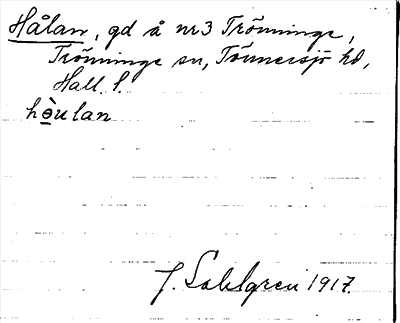 Hålan, gd å nr 3 Trönninge,
Trönninge sn, Tönnersjö hd,
Hall. l.
hò̲u lan
J. Sahlgren 1917.